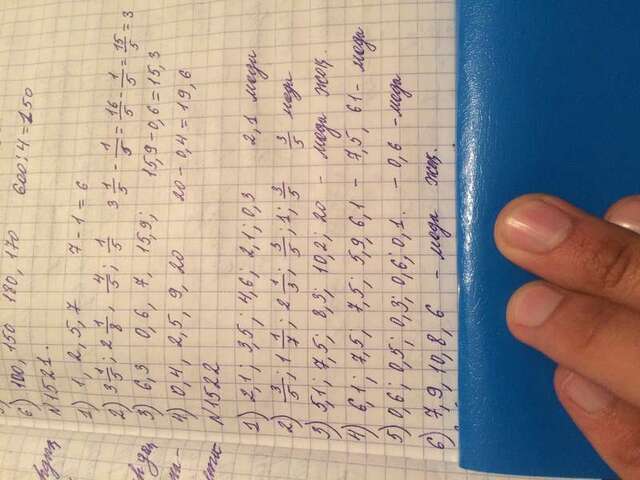 6) 100, 150 180, 170 600:4=150
N1521.
1) 1, 2, 5, 7 7-1=6
2) 3 1/5; 2 1/8, 4/5; 1/5 3 1/5 - 1/5 = 16/5 - 1/5 = 15/5 = 3
3) 6,3 0,6, 7, 15,9; 15,9-0,6=15,3
4) 0,4, 2,5, 9, 20 20-0,4=19,6
N1522
1) 2,1; 3,5; 4,6; 2,1; 0,3 2,1 мода
2) 3/5; 1 1/7; 2 1/3; 3/5; 1; 3/5 3/5 мода
3) 5,1; 7,5; 8,3; 10,2; 20 - мода жоқ.
4) 6,1; 7,5; 7,5; 5,9, 6,1 - 7,5, 61 - мода
5) 0,6; 0,5; 0,3; 0,6; 0,1. - 0,6 - мода
6) 7, 9, 10, 8, 6 - мода жоқ.